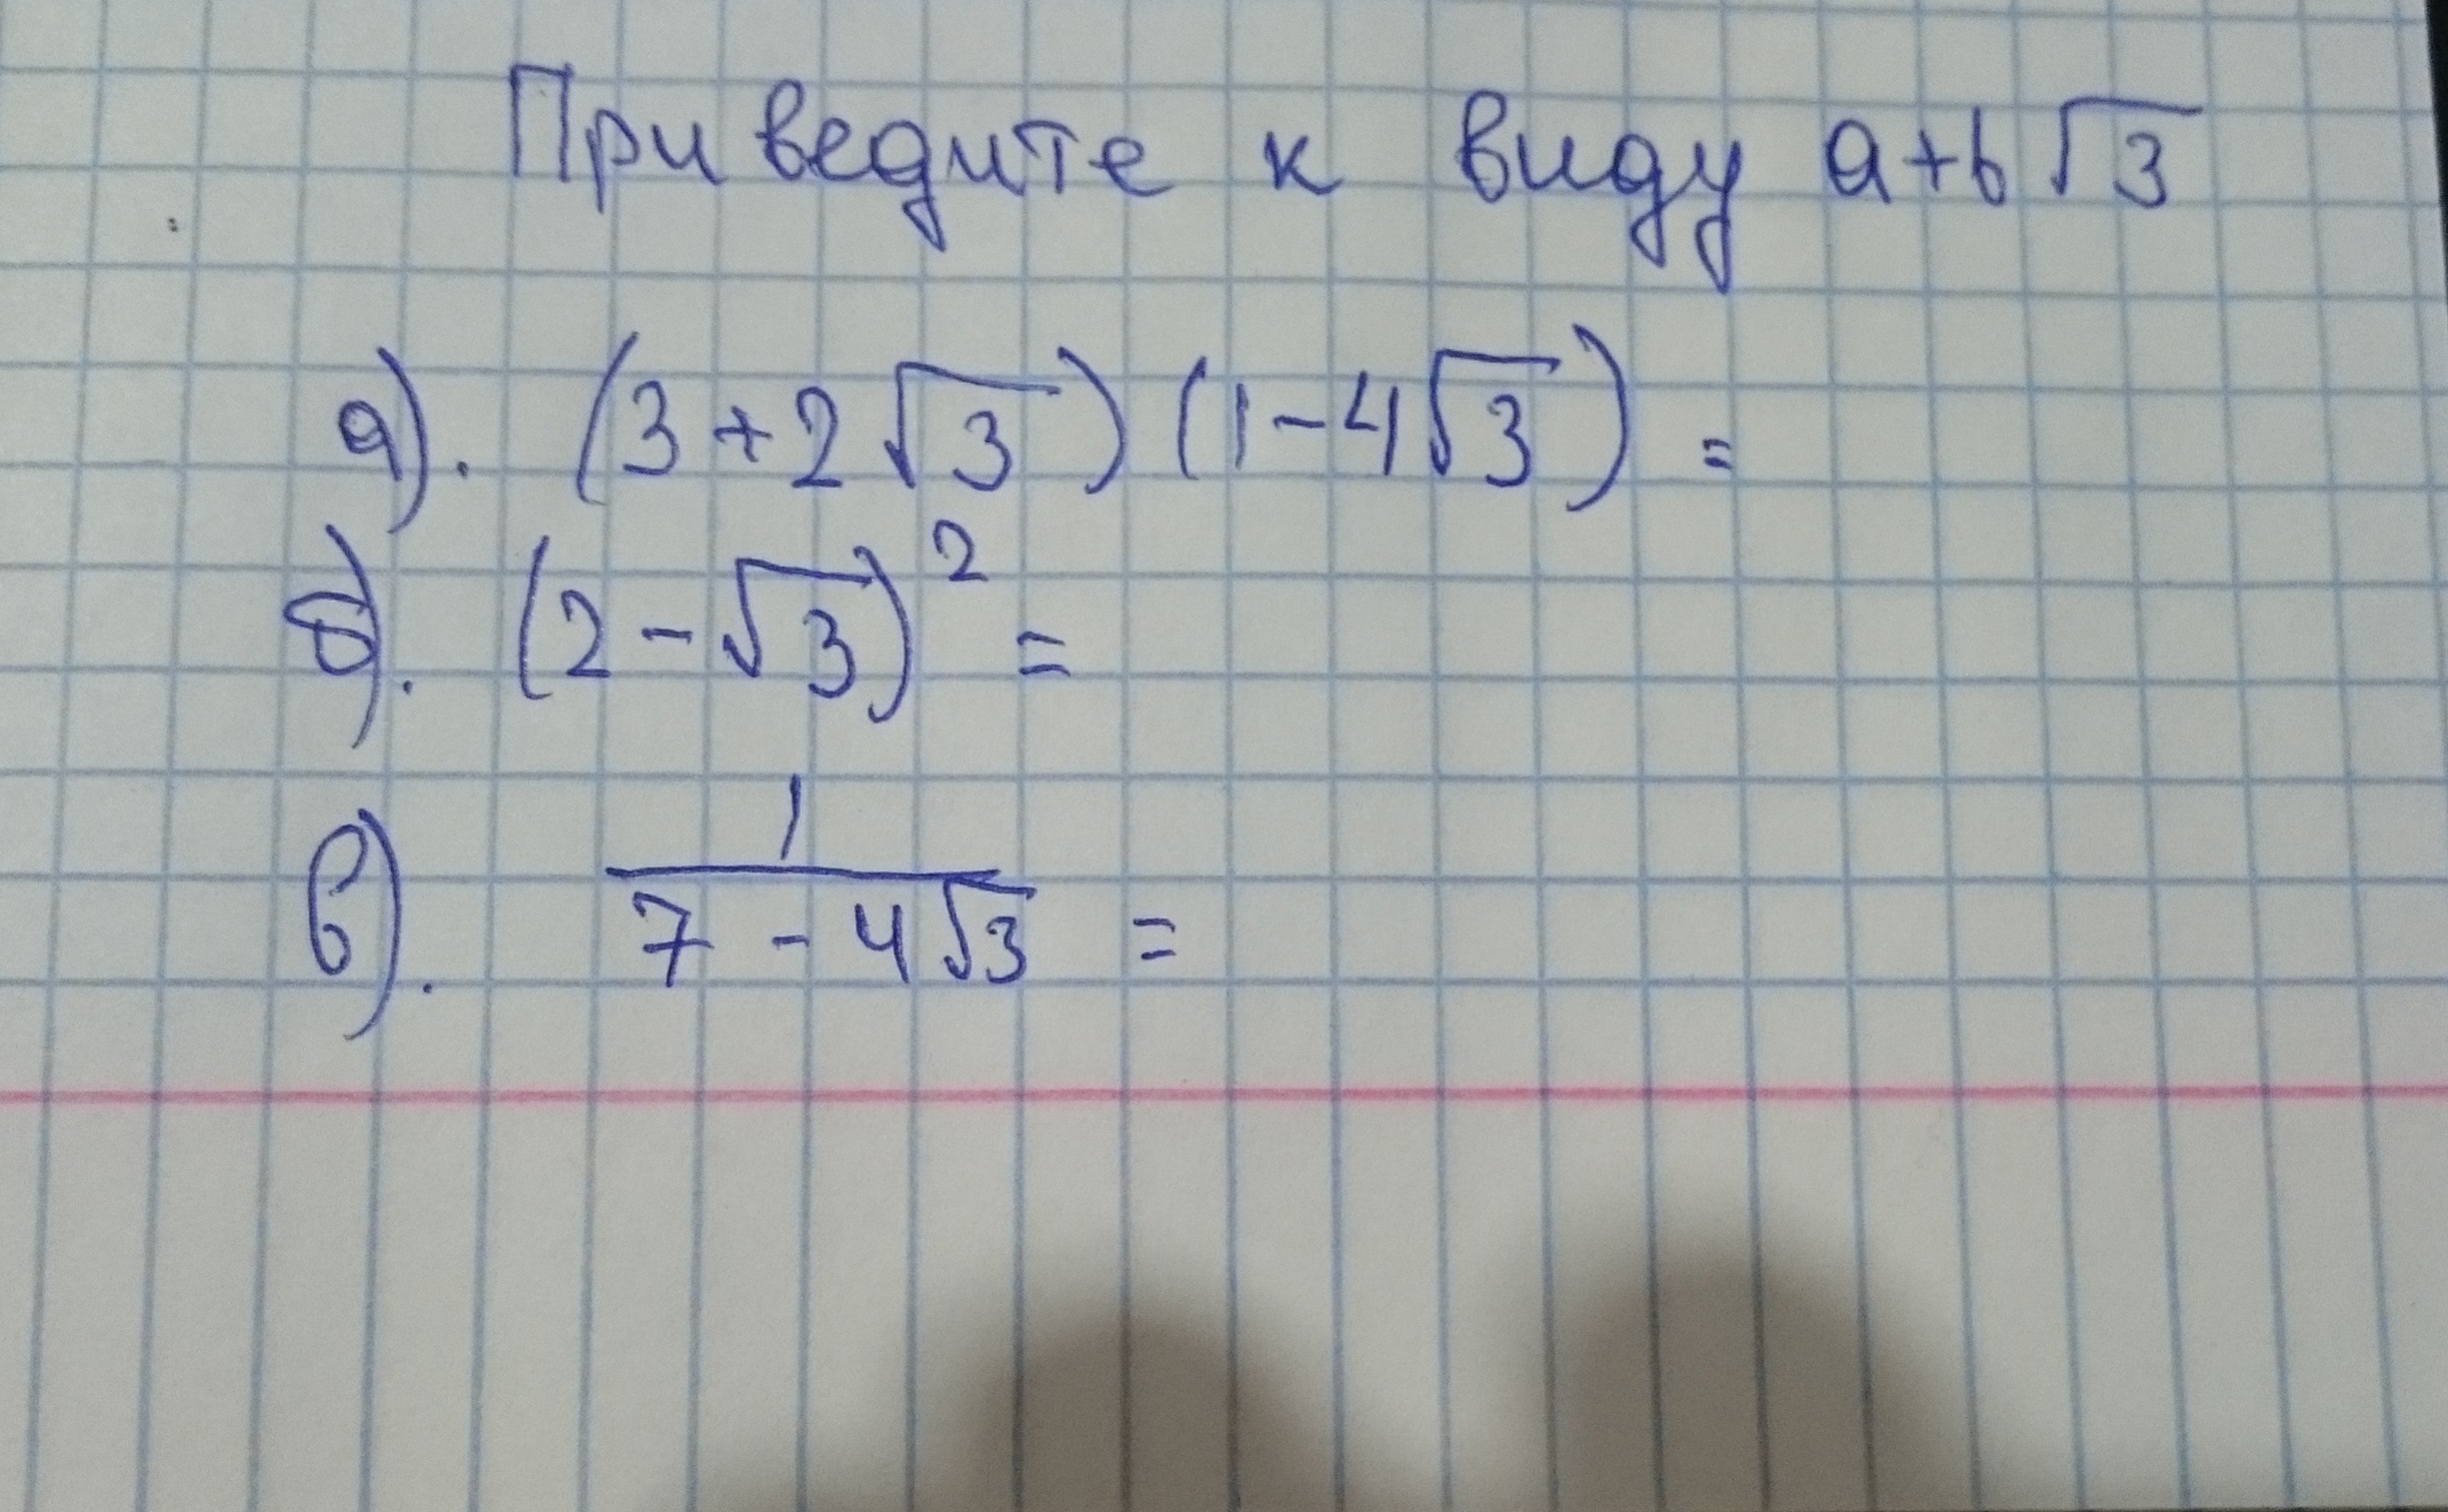 Приведите к виду a+b√3
а). (3+2√3)(1-4√3) =
б). (2-√3)² =
в). 1/(7-4√3) =